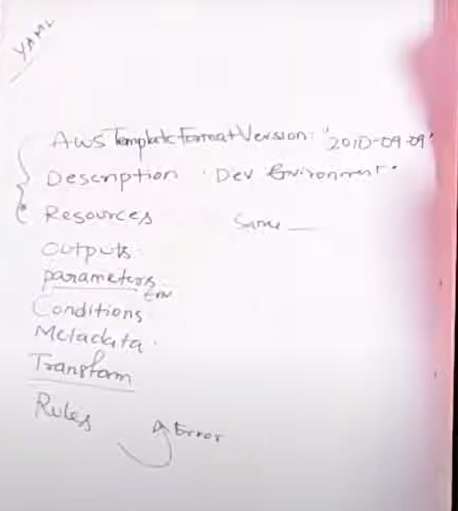 YAML
AWSTemplateFormatVersion: "2010-09-09"
Description : Dev Environment.
Resources Same
Outputs
parameters
Env
Conditions
Metadata
Transform
Rules
Error